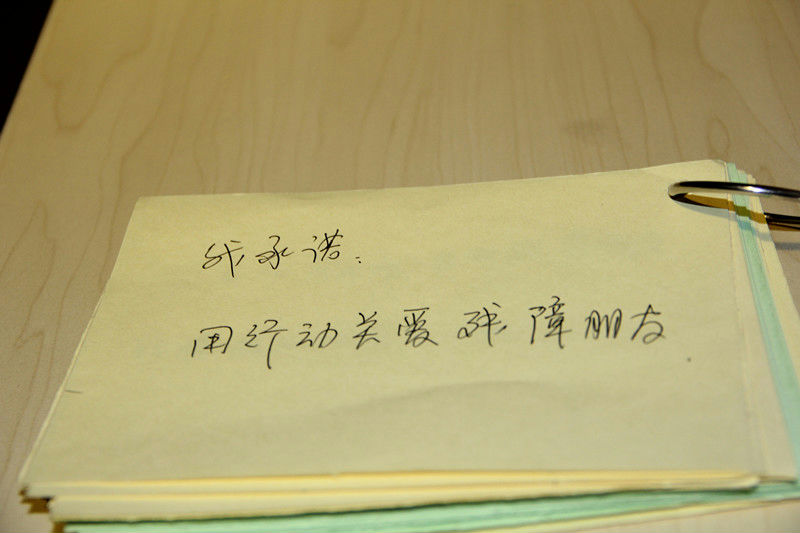 我承诺:
用行动关爱残障朋友.